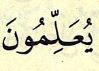 يُعَلِّمُونَ